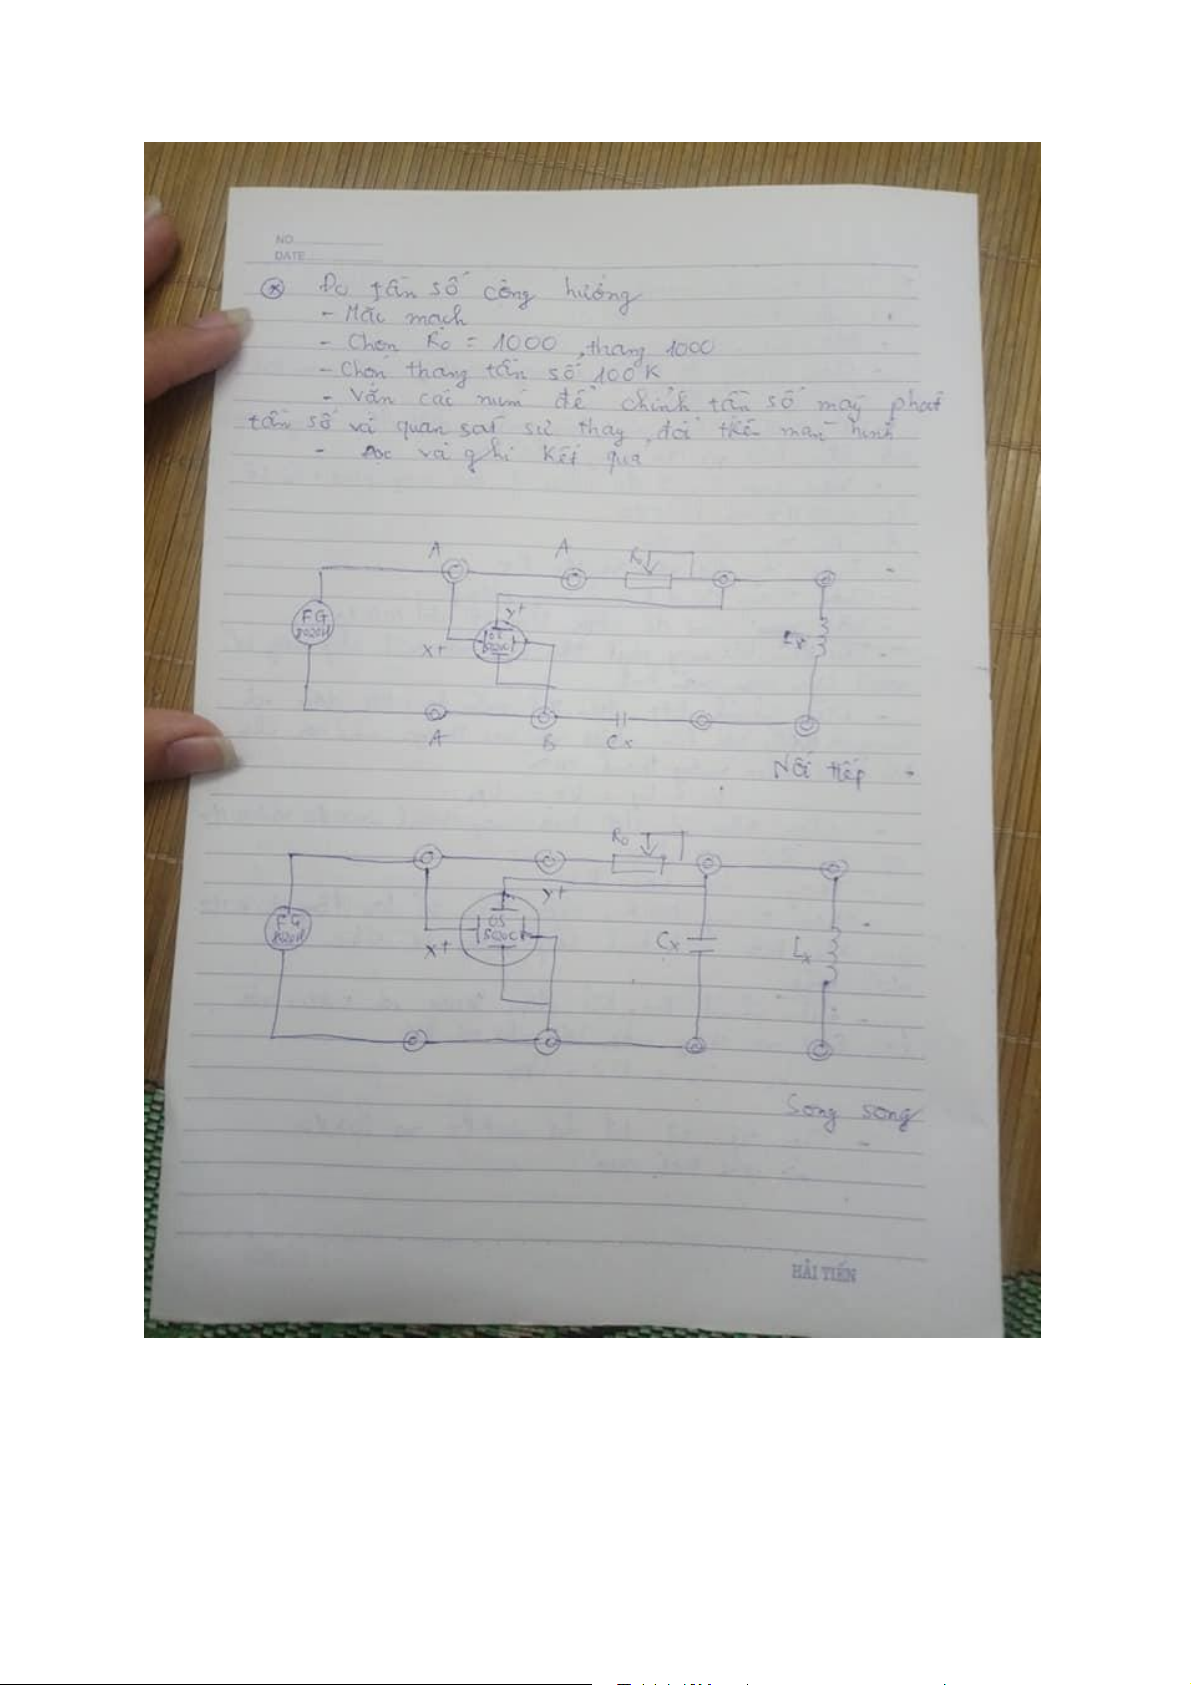 NO
DATE
Đo tần số cộng hưởng
- Mắc mạch
- Chọn R₀ = 1000, thang 1000
- Chọn thang tần số 100K
- Vặn các núm để chỉnh tần số máy phát
tần số và quan sát sự thay đổi trên màn hình
- Đọc và ghi kết quả
A A
FG
y+
x+
Lx
A B Cx
Nối tiếp
R₀
y+
FG
OS
x+
Cx Lx
Song song
HẢI TIẾN